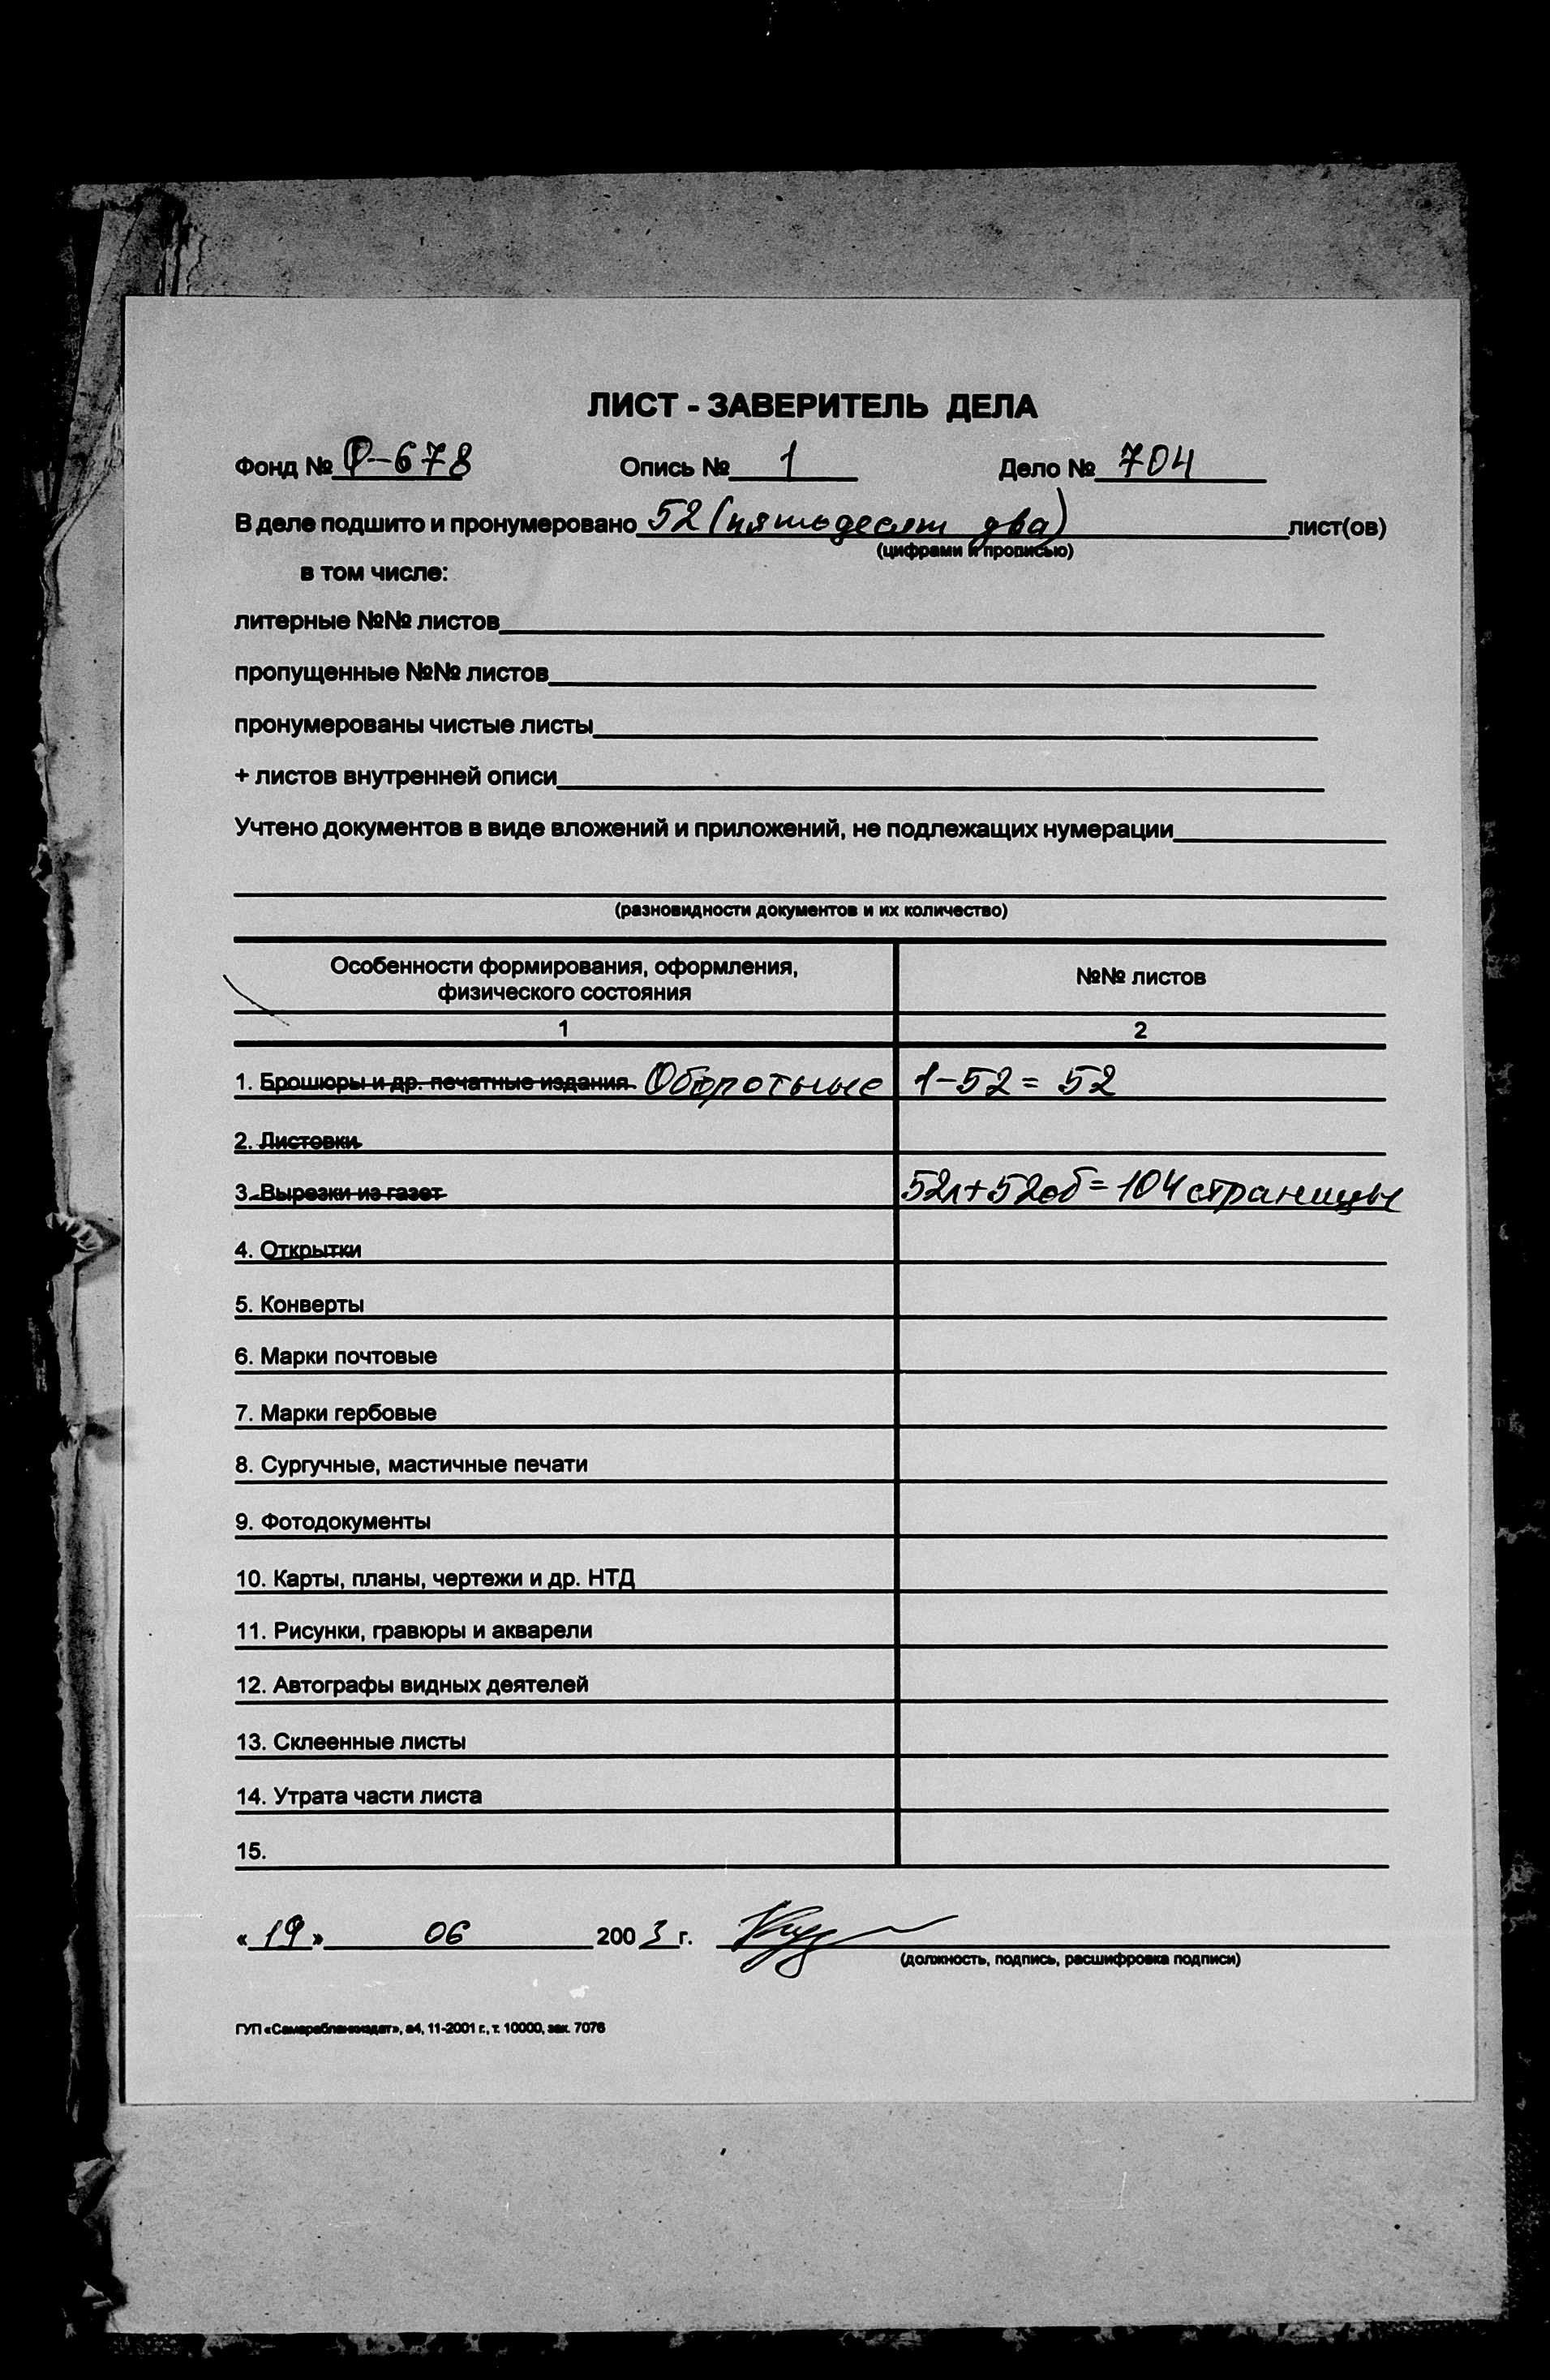 ЛИСТ - ЗАВЕРИТЕЛЬ ДЕЛА
Фонд № Ф-678 Опись № 1 Дело № 704
В деле подшито и пронумеровано 52 (пятьдесят два) лист(ов)
(цифрами и прописью)
в том числе:
литерные №№ листов
пропущенные №№ листов
пронумерованы чистые листы
+ листов внутренней описи
Учтено документов в виде вложений и приложений, не подлежащих нумерации
(разновидности документов и их количество)
Особенности формирования, оформления, №№ листов
физического состояния
1 2
1. Брошюры и др. печатные издания Оборотные 1-52 = 52
2. Листовки
3. Вырезки из газет 52л+52об = 104 страницы
4. Открытки
5. Конверты
6. Марки почтовые
7. Марки гербовые
8. Сургучные, мастичные печати
9. Фотодокументы
10. Карты, планы, чертежи и др. НТД
11. Рисунки, гравюры и акварели
12. Автографы видных деятелей
13. Склеенные листы
14. Утрата части листа
15.
« 19 » 06 2003 г.
(должность, подпись, расшифровка подписи)
ГУП «Самарабланкиздат», а4, 11-2001 г., т. 10000, зак. 7076